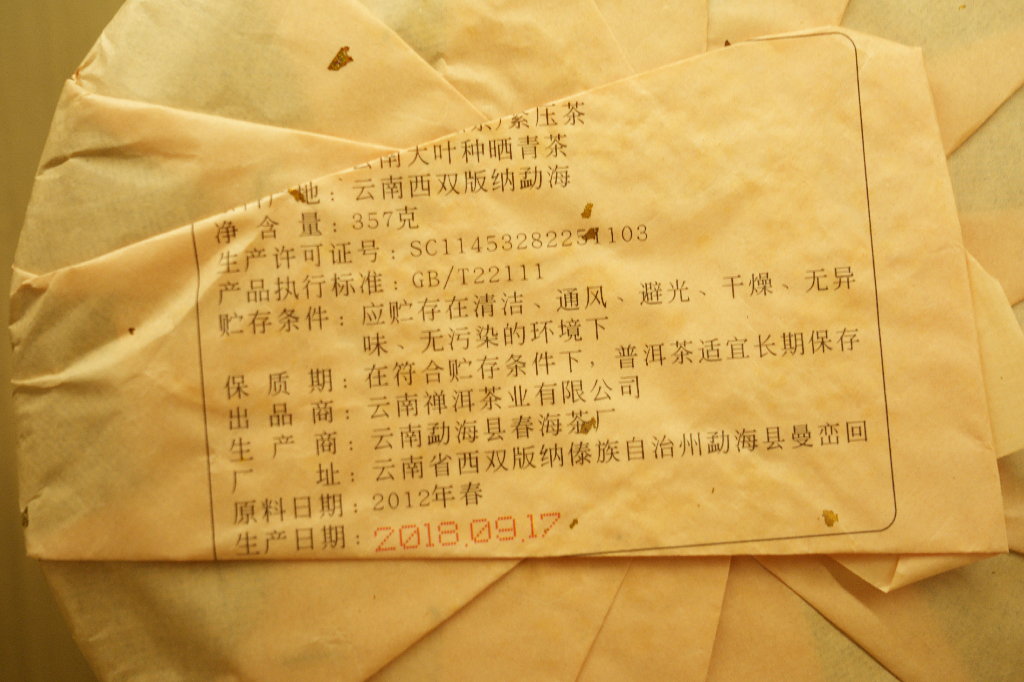 紧压茶
云南大叶种晒青茶
地：云南西双版纳勐海
净含量：357克
生产许可证号：SC11453282251103
产品执行标准：GB/T22111
贮存条件：应贮存在清洁、通风、避光、干燥、无异
味、无污染的环境下
保质期：在符合贮存条件下，普洱茶适宜长期保存
出品商：云南禅洱茶业有限公司
生产商：云南勐海县春海茶厂
厂址：云南省西双版纳傣族自治州勐海县曼峦回
原料日期：2012年春
生产日期：2018.09.17